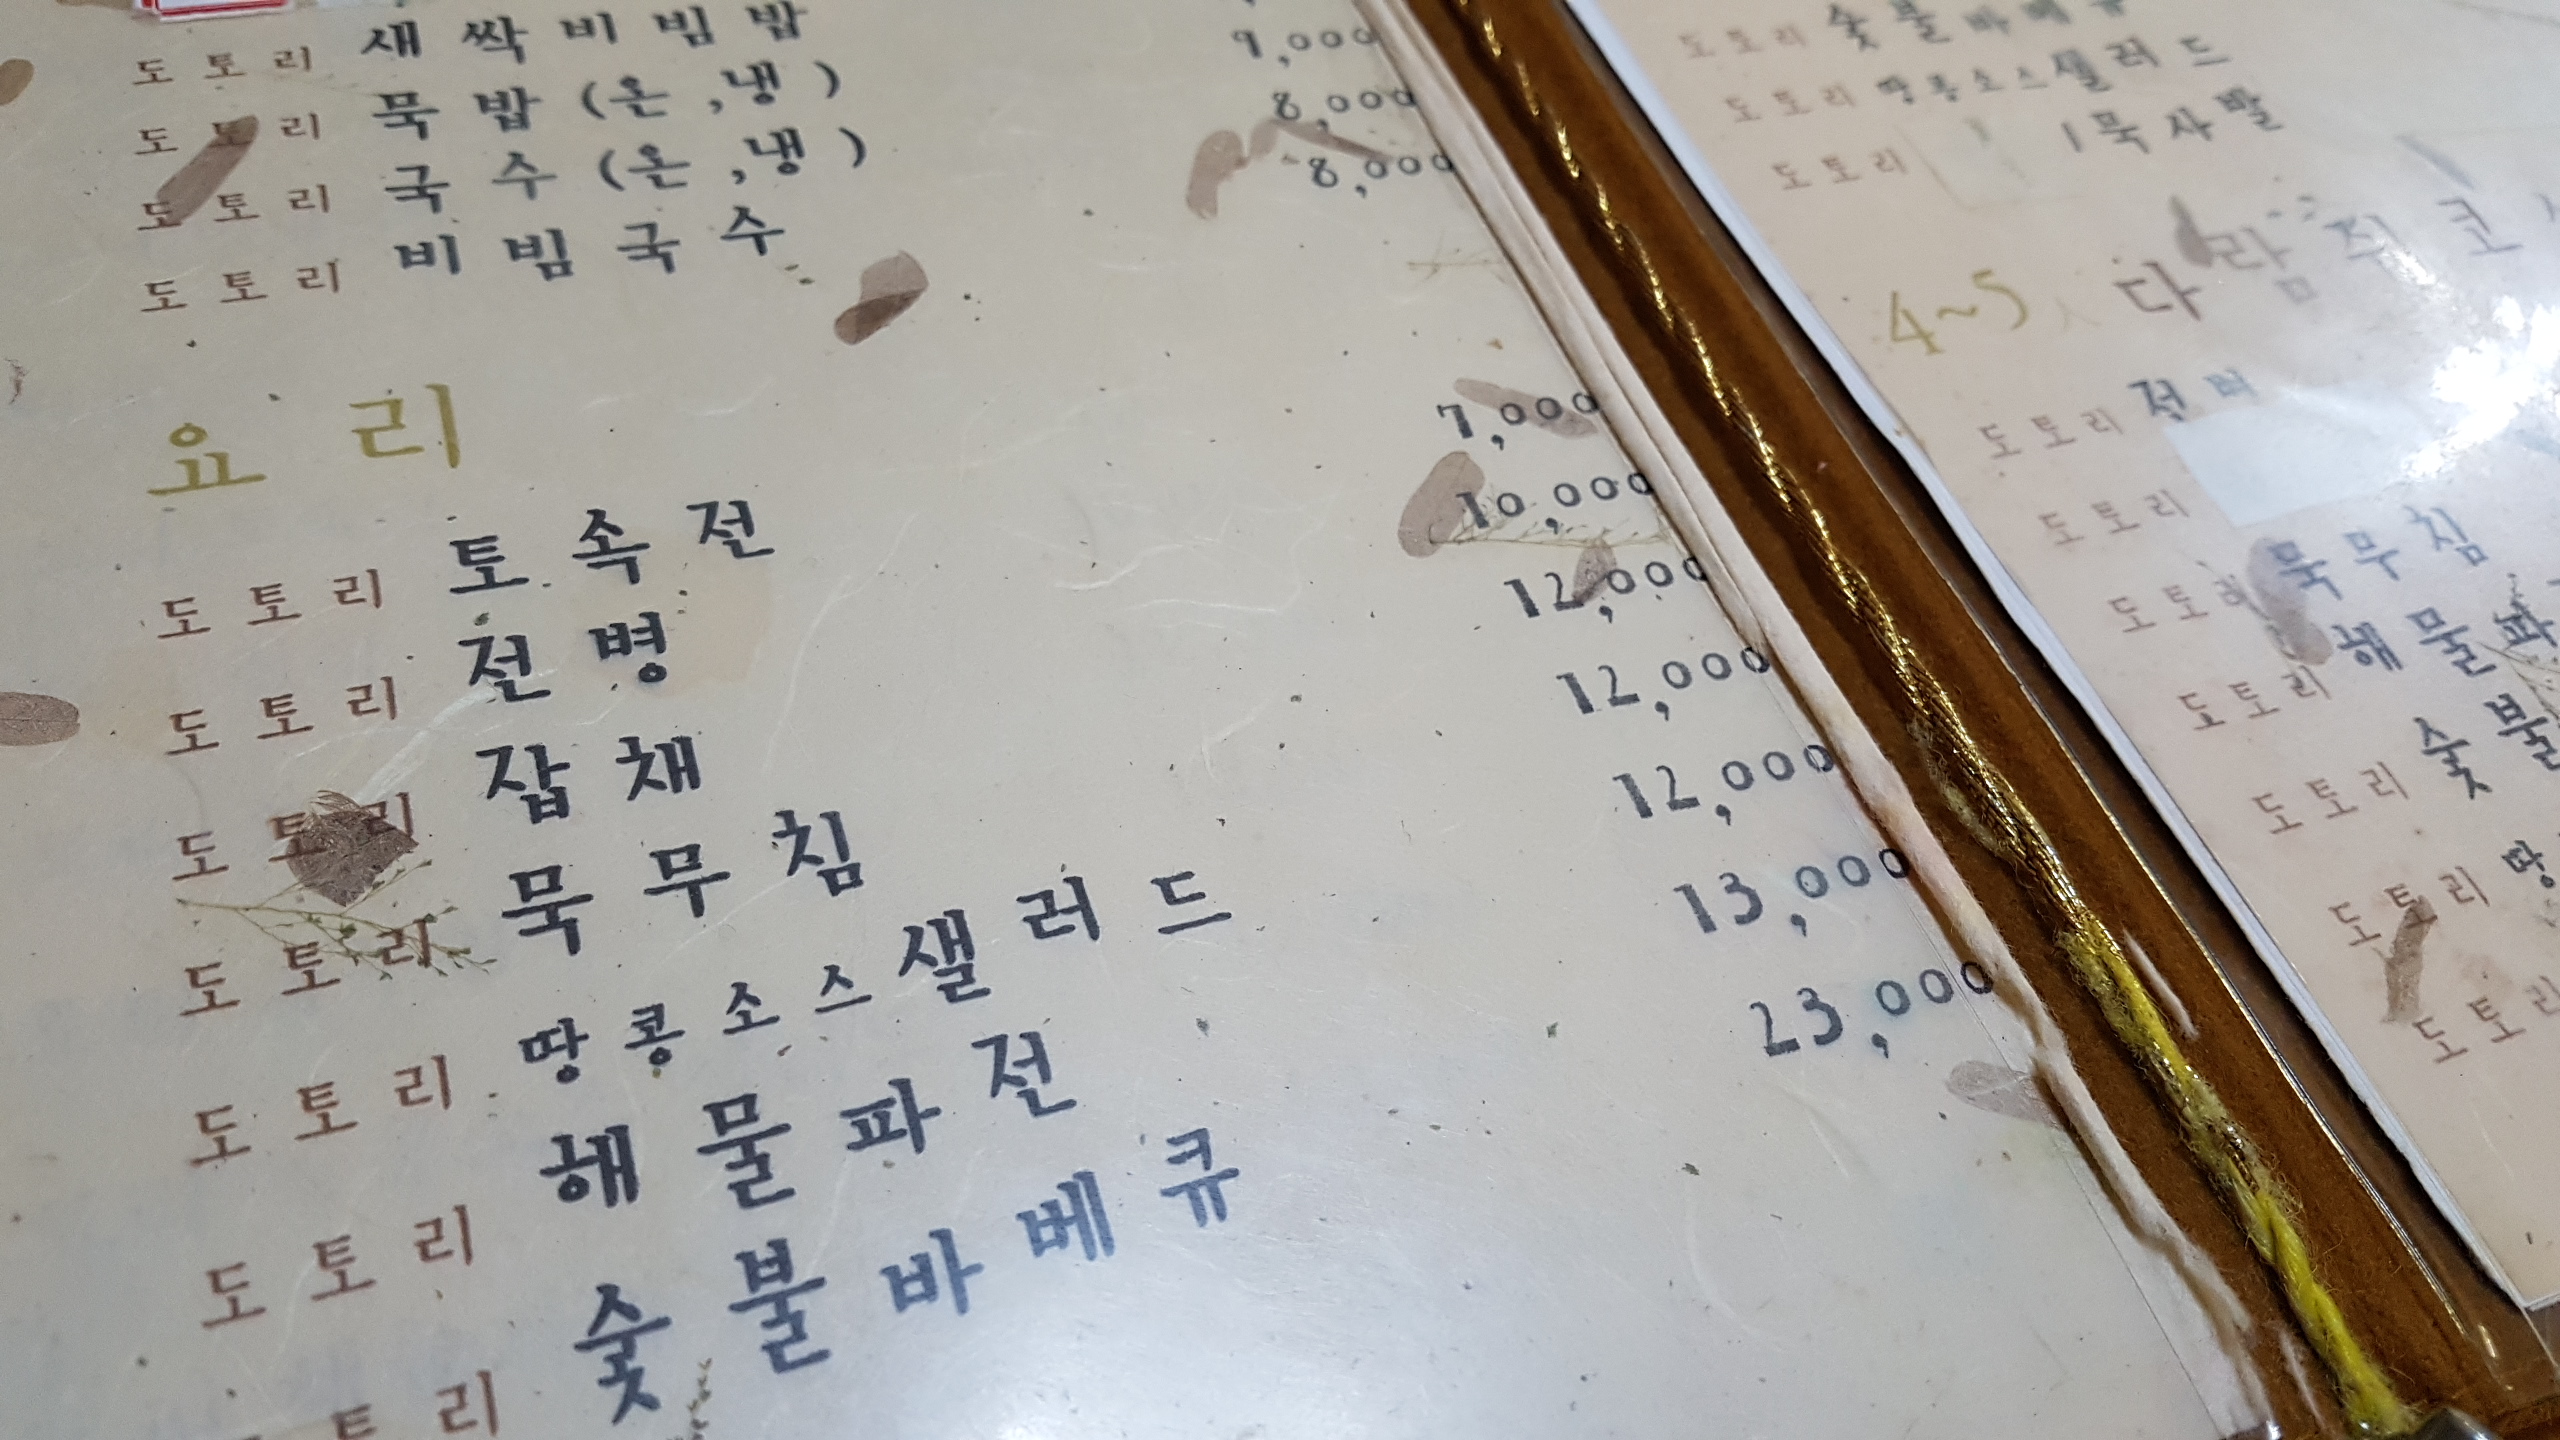 도토리 새싹비빔밥
도토리 묵밥 (온,냉) 9,000
도토리 국수 (온,냉) 8,000
도토리 비빔국수 8,000
요리
도토리 토속전 7,000
도토리 전병 10,000
도토리 잡채 12,000
도토리 묵무침 12,000
도토리 땅콩소스샐러드 12,000
도토리 해물파전 13,000
토리 숯불바베큐 23,000
도토리 숯불바베큐
도토리 땅콩소스샐러드
도토리 묵사발
4~5 다람쥐 코
도토리 전병
도토리
도토리 묵무침
도토리 해물파
도토리 숯불
도토리 땅
도토리